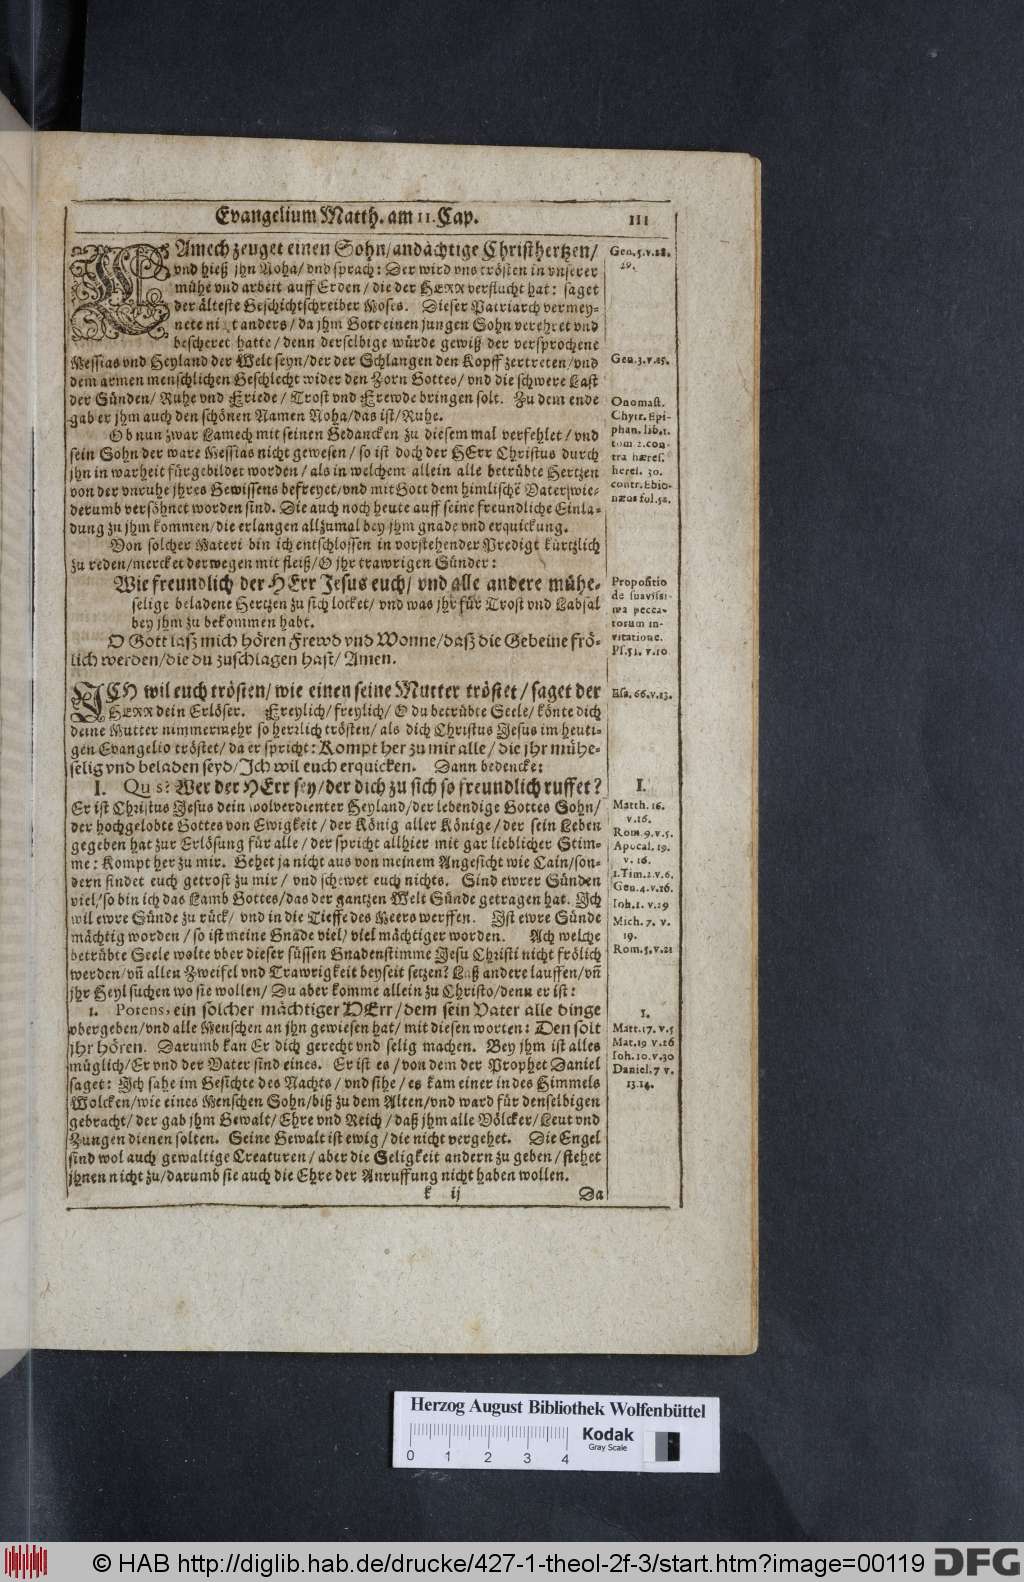 Evangelium Matth. am 11. Cap. 111
LAmech zeuget einen Sohn/ andächtige Christhertzen/
vnd hieß jhn Noha/ vnd sprach: Der wird vns trösten in vnserer
mühe vnd arbeit auff Erden/ die der HERR verflucht hat: saget
der älteste Geschichtschreiber Moses. Dieser Patriarch vermey-
nete nicht anders/ da jhm Gott einen jungen Sohn verehret vnd
bescheret hatte/ denn derselbige würde gewiß der versprochene
Messias vnd Heyland der Welt seyn/ der der Schlangen den Kopff zertreten/ vnd
dem armen menschlichen Geschlecht wider den Zorn Gottes/ vnd die schwere Last
der Sünden/ Ruhe vnd Friede/ Trost vnd Frewde bringen solt. Zu dem ende
gab er jhm auch den schönen Namen Noha/ das ist/ Ruhe.
Ob nun zwar Lamech mit seinen Gedancken zu diesem mal verfehlet/ vnd
sein Sohn der ware Messias nicht gewesen/ so ist doch der HErr Christus durch
jhn in warheit fürgebildet worden/ als in welchem allein alle betrübte Hertzen
von der vnruhe jhres Gewissens befreyet/ vnd mit Gott dem himlischē Vater/ wie-
derumb versöhnet worden sind. Die auch noch heute auff seine freundliche Einla-
dung zu jhm kommen/ die erlangen allzumal bey jhm gnade vnd erquickung.
Von solcher Materi bin ich entschlossen in vorstehender Predigt kürtzlich
zu reden/ mercket derwegen mit fleiß/ O jhr trawrigen Sünder:
Wie freundlich der HErr Jesus euch/ vnd alle andere mühe-
selige beladene Hertzen zu sich locket/ vnd was jhr für Trost vnd Labsal
bey jhm zu bekommen habt.
O Gott laß mich hören Frewd vnd Wonne/ daß die Gebeine frö-
lich werden/ die du zuschlagen hast/ Amen.
ICH wil euch trösten/ wie einen seine Mutter tröstet/ saget der
HERR dein Erlöser. Freylich/ freylich/ O du betrübte Seele/ könte dich
deine Mutter nimmermehr so hertzlich trösten/ als dich Christus Jesus im heuti-
gen Evangelio tröstet/ da er spricht: Kompt her zu mir alle/ die jhr mühe-
selig vnd beladen seyd/ Ich wil euch erquicken. Dann bedencke:
I. Quis? Wer der HErr sey/ der dich zu sich so freundlich ruffet?
Er ist Christus Jesus dein wolverdienter Heyland/ der lebendige Gottes Sohn/
der hochgelobte Gottes von Ewigkeit/ der König aller Könige/ der sein Leben
gegeben hat zur Erlösung für alle/ der spricht allhier mit gar lieblicher Stim-
me: Kompt her zu mir. Gehet ja nicht aus von meinem Angesicht wie Cain/ son-
dern findet euch getrost zu mir/ vnd schewet euch nichts. Sind ewrer Sünden
viel/ so bin ich das Lamb Gottes/ das der gantzen Welt Sünde getragen hat. Ich
wil ewre Sünde zu rück/ vnd in die Tieffe des Meers werffen. Ist ewre Sünde
mächtig worden/ so ist meine Gnade viel/ viel mächtiger worden. Ach welche
betrübte Seele wolte vber dieser süssen Gnadenstimme Jesu Christi nicht frölich
werden/ vñ allen Zweifel vnd Trawrigkeit beyseit setzen? Laß andere lauffen/ vñ
jhr Heyl suchen wo sie wollen/ Du aber komme allein zu Christo/ denn er ist:
1. Potens, ein solcher mächtiger HErr/ dem sein Vater alle dinge
vbergeben/ vnd alle Menschen an jhn gewiesen hat/ mit diesen worten: Den solt
jhr hören. Darumb kan Er dich gerecht vnd selig machen. Bey jhm ist alles
müglich/ Er vnd der Vater sind eines. Er ist es/ von dem der Prophet Daniel
saget: Ich sahe im Gesichte des Nachts/ vnd sihe/ es kam einer in des Himmels
Wolcken/ wie eines Menschen Sohn/ biß zu dem Alten/ vnd ward für denselbigen
gebracht/ der gab jhm Gewalt/ Ehre vnd Reich/ daß jhm alle Völcker/ Leut vnd
Zungen dienen solten. Seine Gewalt ist ewig/ die nicht vergehet. Die Engel
sind wol auch gewaltige Creaturen/ aber die Seligkeit andern zu geben/ stehet
jhnen nicht zu/ darumb sie auch die Ehre der Anruffung nicht haben wollen.
k ij Da
Gen. 5. v. 28.
29.
Gen. 3. v. 15.
Onomast.
Chytr. Epi-
phan. lib. 1.
tom 2. con-
tra hæres.
heres. 30.
contr. Ebio-
næos fol. 52.
Propositio
de suavissi-
ma pecca-
torum in-
vitatione.
Ps. 51. v. 10.
Esa. 66. v. 13.
I.
Matth. 16.
v. 16.
Rom. 9. v. 5.
Apocal. 19.
v. 16.
1. Tim. 2. v. 6.
Gen. 4. v. 16.
Ioh. 1. v. 29
Mich. 7. v.
19.
Rom. 5. v. 21
1.
Matt. 17. v. 5
Mat. 19 v. 26
Ioh. 10. v. 30
Daniel. 7 v.
13. 14.
Herzog August Bibliothek Wolfenbüttel
Kodak
Gray Scale
0 1 2 3 4
© HAB http://diglib.hab.de/drucke/427-1-theol-2f-3/start.htm?image=00119 DFG